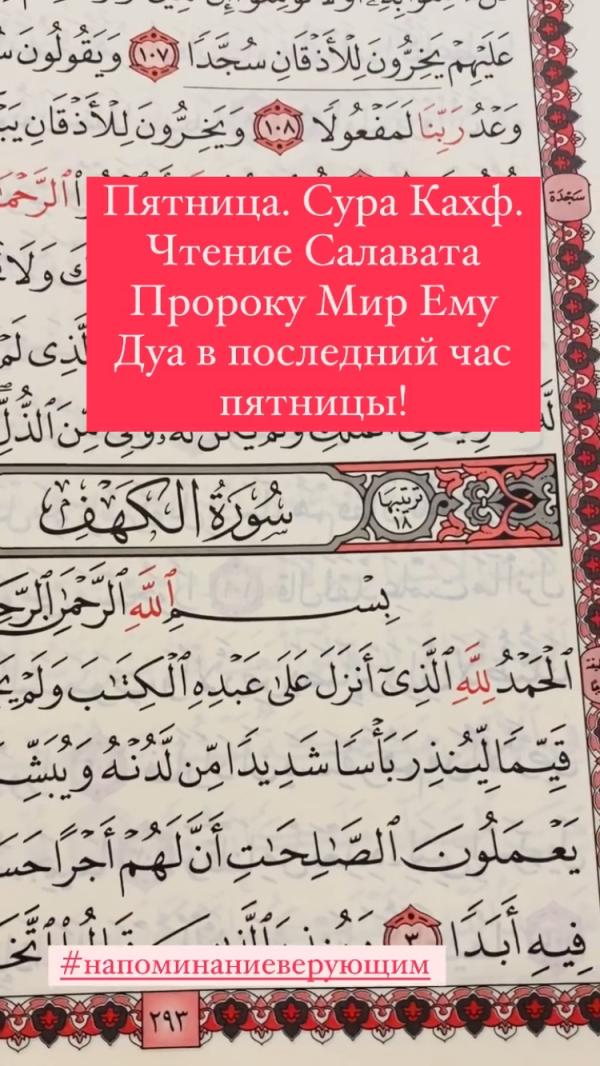 عَلَيْهِمْ يَخِرُّونَ لِلْأَذْقَانِ سُجَّدًا ١٠٧ وَيَقُولُونَ
وَعْدُ رَبِّنَا لَمَفْعُولًا ١٠٨ وَيَخِرُّونَ لِلْأَذْقَانِ
سَجْدَة
Пятница. Сура Кахф.
Чтение Салавата
Пророку Мир Ему
Дуа в последний час
пятницы!
وَلَا
لَمْ
مِّنَ ٱلذُّلِّ
سُورَةُ ٱلْكَهْفِ
ترتيبها ١٨
بِسْمِ ٱللَّهِ ٱلرَّحْمَٰنِ
ٱلْحَمْدُ لِلَّهِ ٱلَّذِىٓ أَنزَلَ عَلَىٰ عَبْدِهِ ٱلْكِتَٰبَ وَلَمْ
قَيِّمًا لِّيُنذِرَ بَأْسًا شَدِيدًا مِّن لَّدُنْهُ
يَعْمَلُونَ ٱلصَّٰلِحَٰتِ أَنَّ لَهُمْ أَجْرًا
فِيهِ أَبَدًا ٣
#напоминаниеверующим
٢٩٣